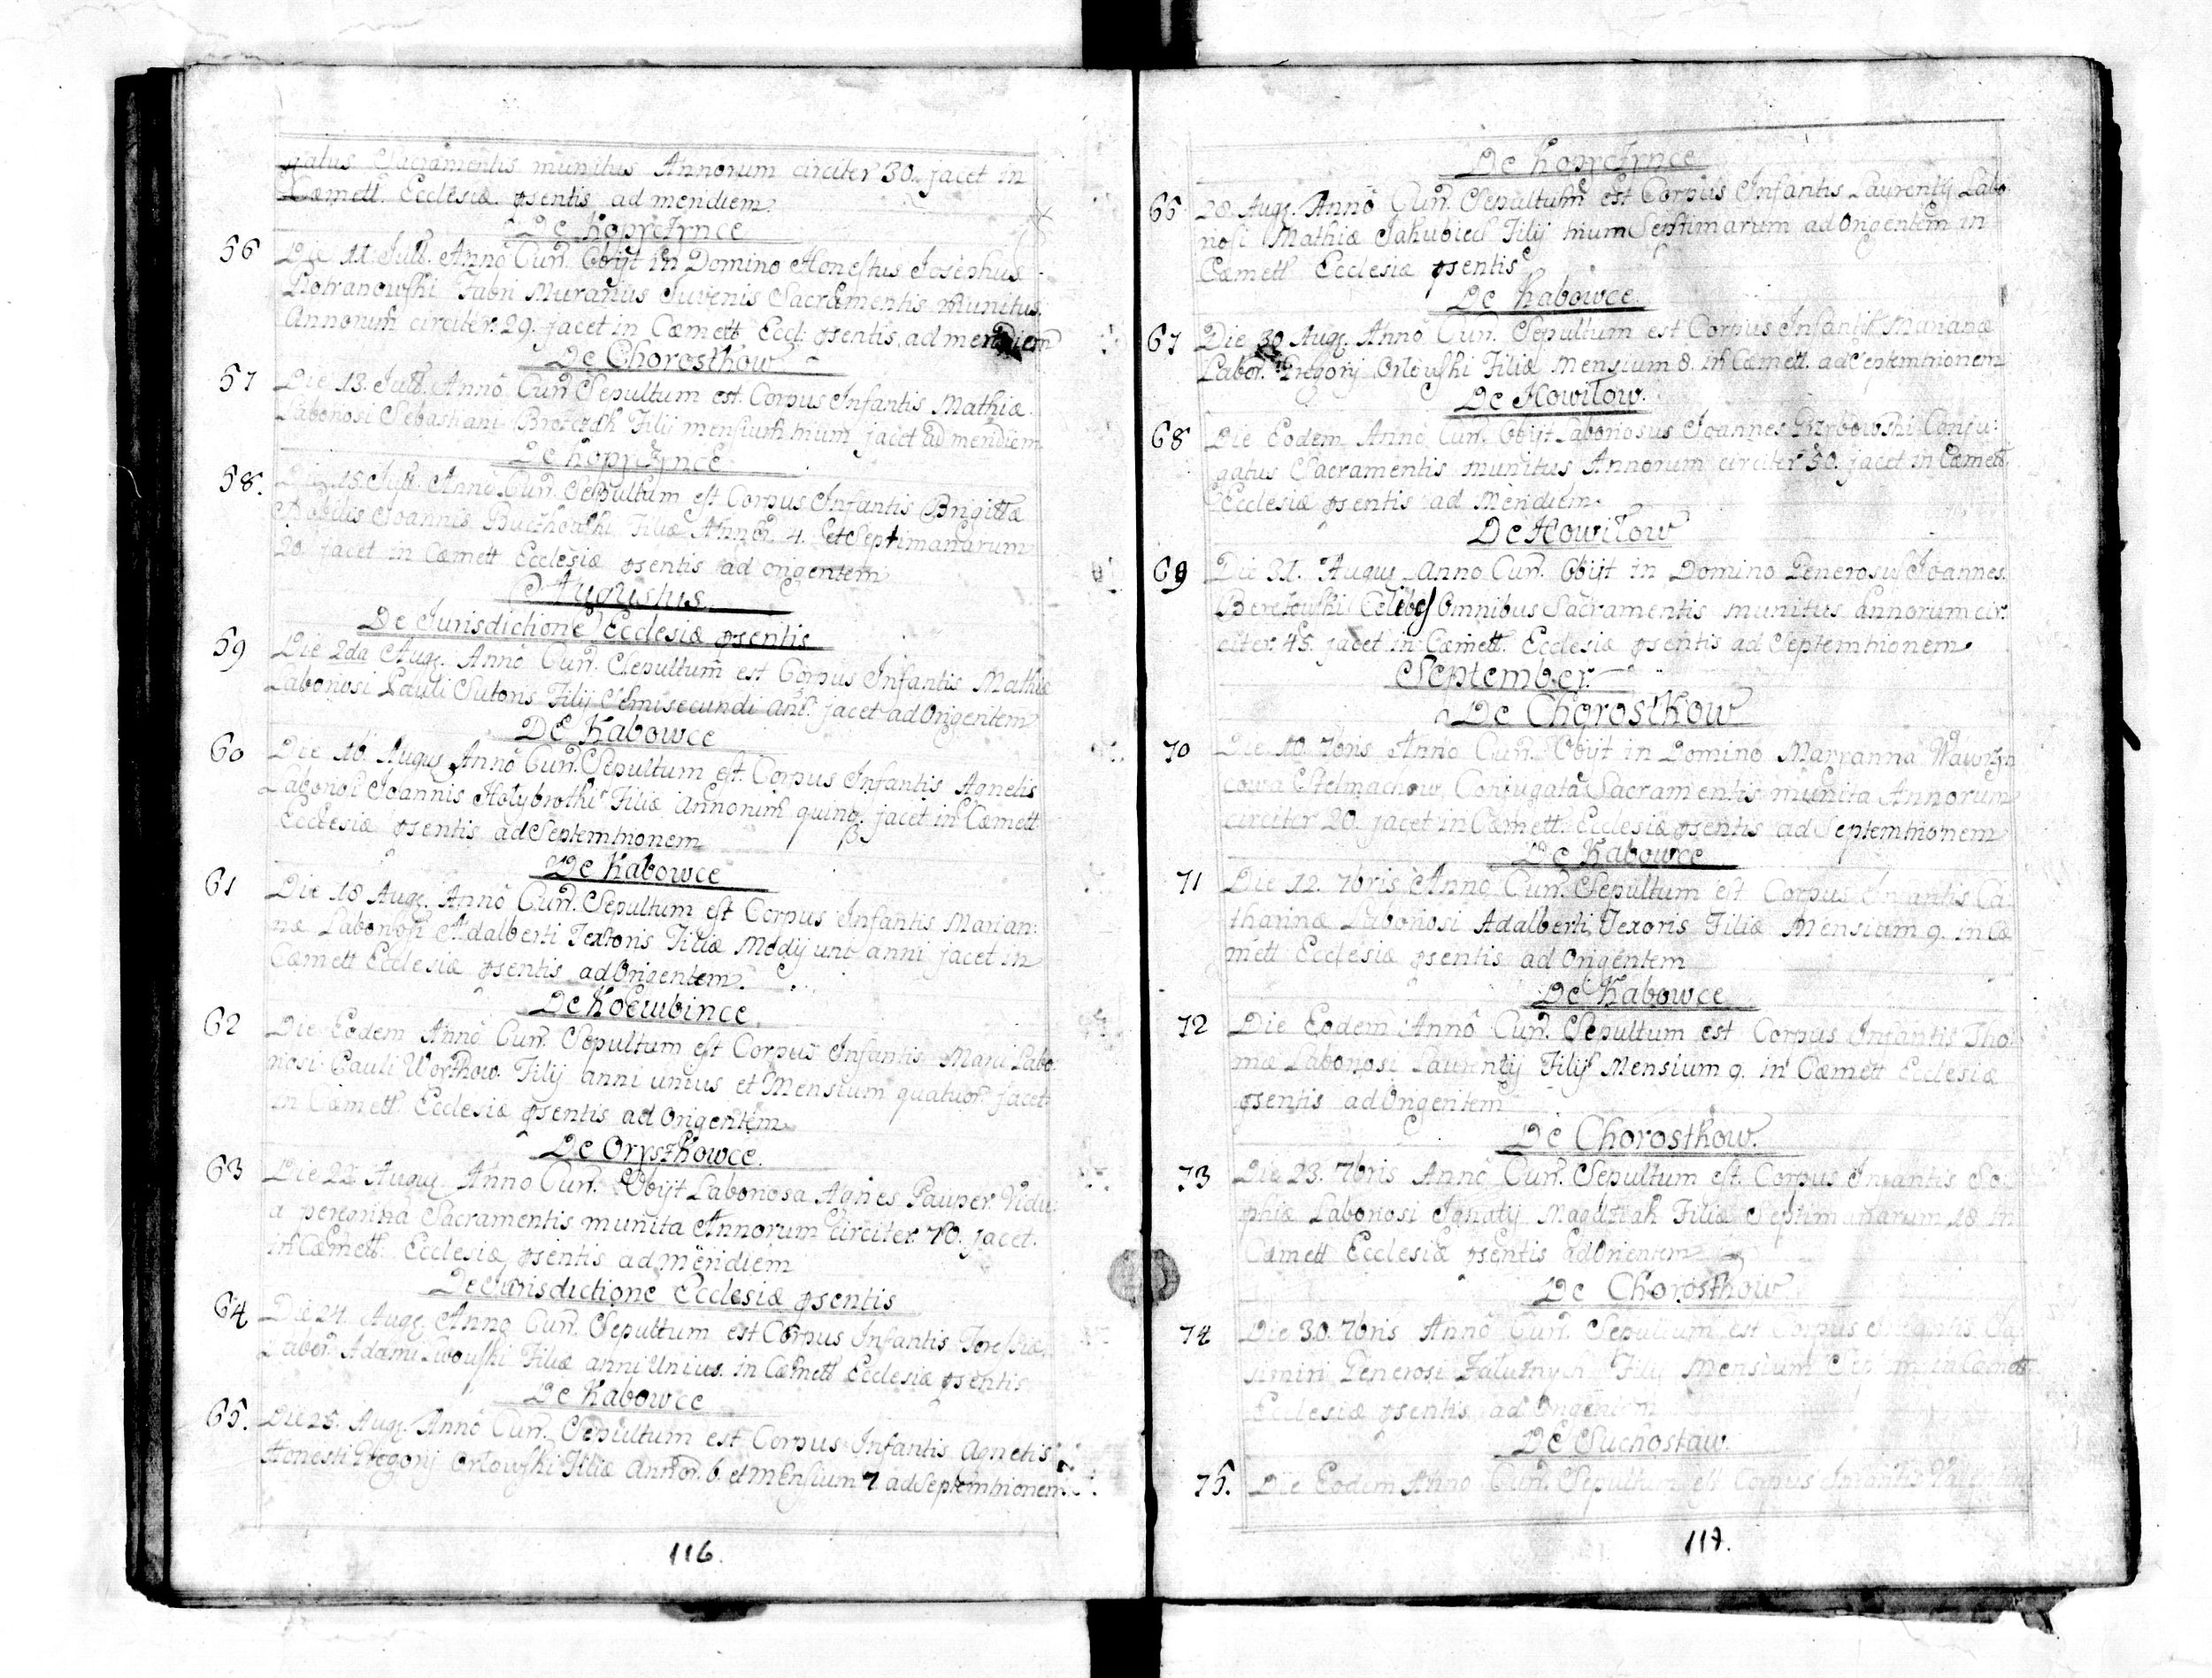 gatus Sacramentis munitus Annorum circiter 30. jacet in
Cæmett. Ecclesiæ psentis ad meridiem.
De Kopyctynce
56 Die 11. Jull. Anno Curr. Obijt in Domino Honestus Josephus
Piotranowski Fabri Murarius Juvenis Sacramentis Munitus
Annorum circiter. 29. jacet in Cæmett Eccl: psentis, ad meridiem
De Chorostkow
57 Die 13. Jull. Anno Curr Sepultum est. Corpus Infantis Mathiæ
Laboriosi Sebastiani Filij mensium trium jacet ad meridiem
De Kopyctynce
58. Die 15. Jull. Anno Curr. Sepultum est Corpus Infantis Brigittæ
Nobilis Joannis Filiæ Annor. 4. et Septimanarum
20. jacet in Cæmett Ecclesiæ psentis ad origentem
Augustus
De Jurisdictione Ecclesiæ psentis
59 Die 2da Aug. Anno Curr. Sepultum est Corpus Infantis Mathiæ
Laboriosi Pauli Sutoris Filij Semisecundi ani. jacet ad Origentem
DE Kabowce
60 Die 16. Augus Anno Curr. Sepultum est. Corpus Infantis Agnetis
Laboriosi Joannis Filiæ Annorum quinq. jacet in Cæmett
Ecclesiæ psentis ad Septemtrionem
De Kabowce
61 Die 18 Aug. Anno Curr. Sepultum est Corpus Infantis Marian:
næ Laboriosi Adalberti Textoris Filiæ Medij uni anni jacet in
Cæmett Ecclesiæ psentis ad Origentem.
De Kociubince
62 Die Eodem Anno Curr. Sepultum est Corpus Infantis Labo:
riosi Pauli Filij anni unius et Mensium quatuor jacet
in Cæmett. Ecclesiæ psentis ad origentem
De Oryszkowce.
63 Die 22 Augus Anno Curr. Obijt Laboriosa Agnes Pauper Vidu
a peregrina Sacramentis munita Annorum circiter. 70. jacet.
in Cæmett. Ecclesiæ psentis ad meridiem
De Jurisdictione Ecclesiæ psentis
64 Die 24. Aug. Anno Curr. Sepultum est Corpus Infantis Teressiæ
Labor. Adami Filiæ anni Unius. in Cæmett Ecclesiæ psentis
De Kabowce
65. Die 25. Aug. Anno Curr. Sepultum est Corpus Infantis Agnetis
Honesti Gregorij Orlowski Filiæ Annor. 6. et Mensium 7. ad Septemtrionem
116.
De Kopyctynce
66 28. Aug. Anno Curr. Sepultum est Corpus Infantis Laurentij Labo
riosi Mathiæ Jakubiec Filij trium Septimarum ad Origentem in
Cæmett Ecclesiæ psentis
De Kabowce.
67 Die 30 Aug. Anno Curr. Sepultum est Corpus Infantis Marianæ
Labor. Gregorij Orlowski Filiæ Mensium 8. in Cæmett. ad Septemtrionem
De Howilow.
68 Die Eodem Anno Curr. Obijt Laboriosus Joannes Przybowski Conju:
gatus Sacramentis munitus Annorum circiter 50. jacet in Cæmett
Ecclesiæ psentis ad Meridiem.
De Howilow
69 Die 31. Augus Anno Curr. Obijt in Domino Generosus Joannes
Celebs Omnibus Sacramentis munitus Annorum cir:
citer. 45. jacet in Cæmett. Ecclesiæ psentis ad Septemtrionem.
September.
De Chorostkow
70 Die 10. 7bris Anno Curr. Obijt in Domino Maryanna Wawrzyn
cowa Stelmachow, Conjugata Sacramentis munita Annorum
circiter 20. jacet in Cæmett. Ecclesiæ psentis ad Septemtrionem
De Kabowce
71 Die 12. 7bris Anno Curr. Sepultum est Corpus Infantis Ca
tharinæ Laboriosi Adalberti, Texoris Filiæ Mensium 9. in Cæ
mett Ecclesiæ psentis ad Origentem
De Kabowce
72 Die Eodem Anno Curr. Sepultum est Corpus Infantis Tho
mæ Laboriosi Laurentij Filij Mensium 9. in Cæmett Ecclesiæ
psentis ad Origentem
De Chorostkow.
73 Die 23. 7bris Anno Curr. Sepultum est. Corpus Infantis So
phiæ Laboriosi Ignatij Filiæ Septimanarum 18 in
Cæmett Ecclesiæ psentis ad Orientem
De Chorostkow
74 Die 30. 7bris Anno Curr. Sepultum est Corpus
Generosi Filij Mensium in Cæmett
Ecclesiæ psentis ad Origentem
De Suchostaw.
75. Die Eodem Anno Curr. Sepultum est Corpus Infantis
117.